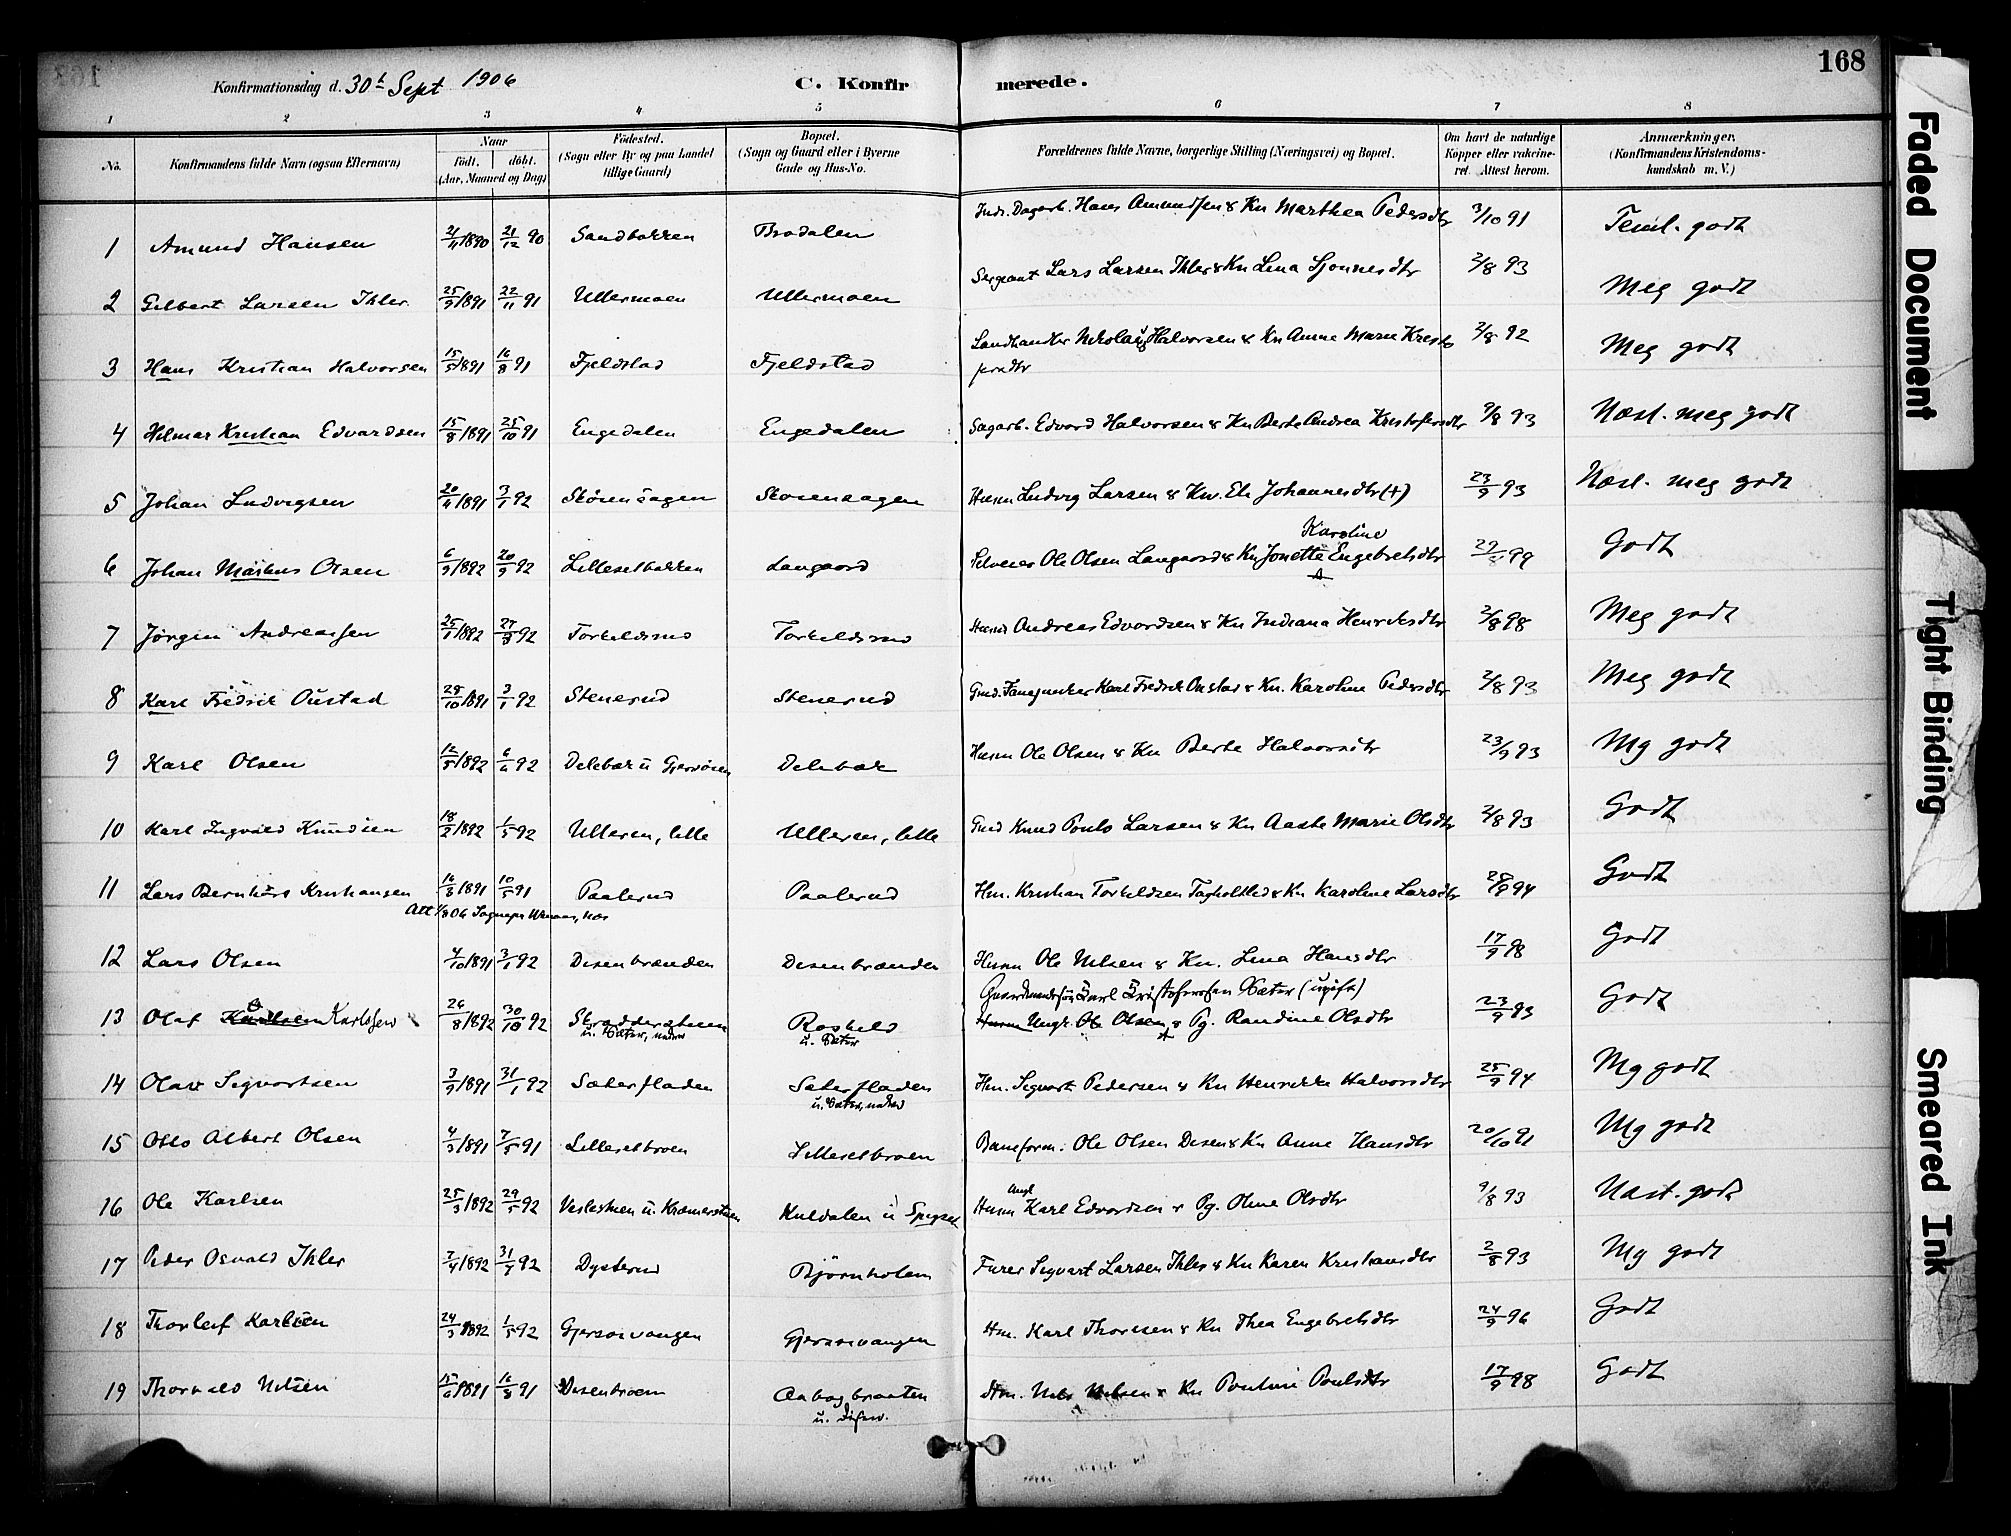 168
Konfirmationsdag d. 30t Sept 1906 C. Konfirmerede.
1 2 3 4 5 6 7 8
No. Konfirmandens fulde Navn (ogsaa Efternavn) Naar födt. döbt. (Aar, Maaned og Dag) Födested. (Sogn eller By og paa Landet tillige Gaard) Bopæl. (Sogn og Gaard eller i Byerne Gade og Hus-No. Forældrenes fulde Navne, borgerlige Stilling (Næringsvei) og Bopæl. Om havt de naturlige Kopper eller vakcineret. Attest herom. Anmærkninger, (Konfirmandens Kristendomskundskab m. V.)
1 Amund Hansen 21/11 1890 21/12 90 Sandbakken Brodalen Indr. Dagarb. Hans Amundsen & Kn Marthea Pedersdtr 3/10 91 Teml. godt
2 Gilbert Larsen Ihler 25/9 1891 22/11 91 Ullermoen Ullermoen Sergeant Lars Larsen Ihler & Kn Lina Sjonnesdtr 2/8 93 Meg godt
3 Hans Kristian Halvorsen 15/5 1891 16/8 91 Fjeldstad Fjeldstad Landhandler Nikolai Halvorsen & Kn Anne Marie Kristo
fersdtr 2/8 92 Meg godt
4 Hilmar Kristian Edvardsen 15/8 1891 25/10 91 Engedalen Engedalen Sagarb. Edvard Halvorsen & Kn Berte Andrea Kristofersdtr 9/8 93 Næst. meg godt
5 Johan Ludvigsen 20/11 1891 3/1 92 Skösensagen Skosensagen Husm Ludvig Larsen & Kn. Eli Johannesdtr (+) 23/9 93 Næst. meg godt
Karoline
6 Johan Marius Olsen 6/9 1892 20/9 92 Lillesetbakken Langaard Selveier Ole Olsen Langaard & Kn Jonette Engebretsdtr 29/ 99 Godt
7 Jörgen Andreassen 25/1 1892 27/3 92 Torkeldsrud Torkeldsrud Husm Andreas Edvardsen & Kn Indiana Henriksdtr 2/8 98 Meg godt
8 Karl Fredrik Oustad 28/10 1891 3/1 92 Stenerud Stenerud Gmd. Fanejunker Karl Fredrik Oustad & Kn. Karoline Pedersdtr 2/8 93 Meg godt
9 Karl Olsen 12/5 1892 6/6 92 Delebæk u Gjersöien Delebæk Husm Ole Olsen & Kn Berte Halvorsdtr 23/9 93 Mg godt
10 Karl Ingvald Knudsen 18/2 1892 1/5 92 Ulleren, lille Ulleren, lille Gmd Knud Pouls Larsen & Kn Aaste Marie Olsdtr 2/8 93 Godt
11 Lars Bernhard Kristiansen 16/3 1891 10/5 91 Paalerud Paalerud Hm. Kristian Torkeldsen & Kn Karoline Larsdtr 28/9 94 Godt
Att 1/8 06 Sognepr
12 Lars Olsen 4/10 1891 3/1 92 Disenbrænden Disenbrænden Husm Ole Nilsen & Kn. Lina Hansdtr 17/9 98 Godt
Gaardmandssön Karl Kristoffersen Sæter (ugift)
13 Olaf Karlsen 26/8 1892 30/10 92 Skræddersteen Roskeld Husm Ungk. Ole Olsen & Pg. Randine Olsdtr 23/9 93 Godt
u. Sæter, nedre u. Sæter
14 Olav Sigvartsen 3/9 1891 31/1 92 Sæterfladen Sæterfladen Hm. Sigvart Pedersen & Kn Henrikke Halvorsdtr 25/9 94 Mg godt
u. Sæter, nedre
15 Otto Albert Olsen 4/3 1891 7/5 91 Lillesetbroen Lillesetbroen Baneform. Ole Olsen Disen & Kn Anne Hansdtr 20/10 91 Mg godt
Ungk
16 Ole Karlsen 25/3 1892 29/5 92 Vesleskuen u. Kræmerstuen Kuldalen u Husm Karl Edvardsen & Pg. Oline Olsdtr 9/8 93 Næst. godt
17 Peder Osvald Ihler 7/4 1892 31/7 92 Dysterud Björnholem Furer Sigvart Larsen Ihler & Kn Karen Kristiansdtr 2/8 93 Mg godt
18 Thorleif Karlsen 24/3 1892 1/5 92 Gjersoivangen Gjersoivangen Hm. Karl Thoresen & Kn Thea Engebretsdtr 24/9 96 Godt
19 Thorvald Nilsen 15/6 1891 16/8 91 Disenbroen Aabogbraaten Hm. Nils Nilsen & Kn Pouline Poulsdtr 17/9 98 Godt
u. Disen.
Faded Document
Tight Binding
Smeared Ink